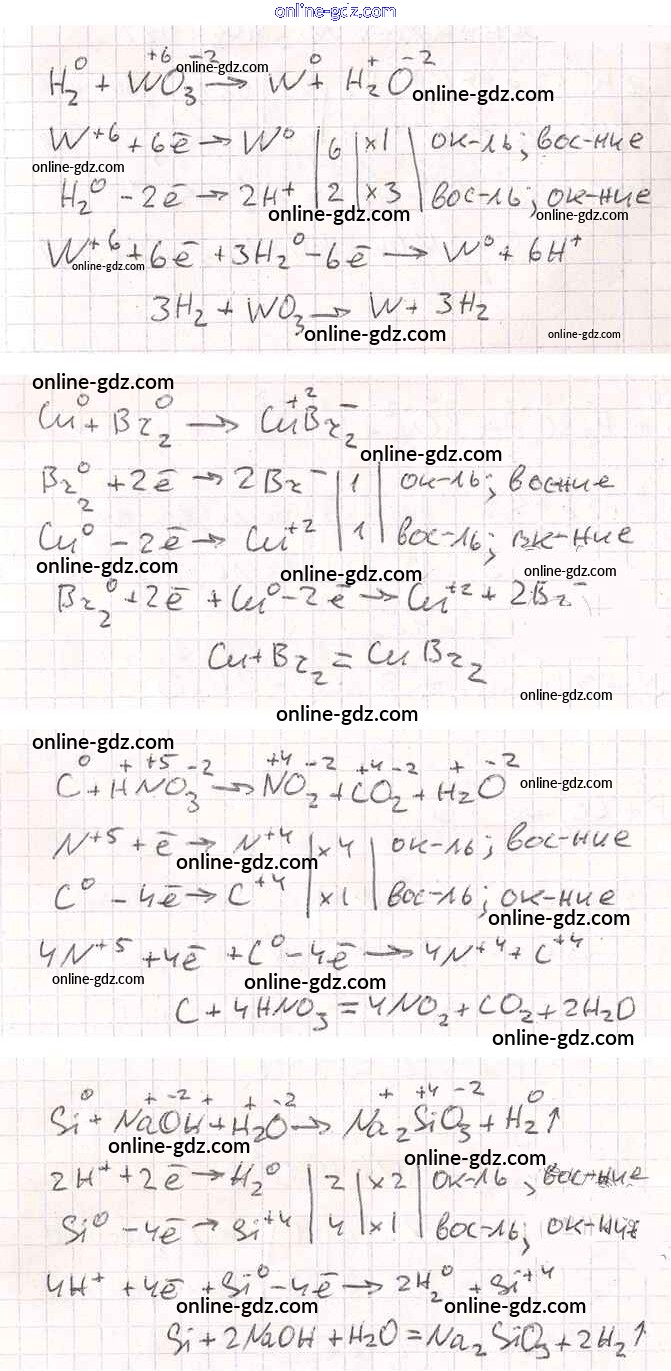 online-gdz.com
H₂⁰ + W⁺⁶O₃⁻² → W⁰ + H₂⁺O⁻² online-gdz.com online-gdz.com
W⁺⁶ + 6ē → W⁰ | 6 | ×1 | ок-ль; вос-ние online-gdz.com
H₂⁰ - 2ē → 2H⁺ | 2 | ×3 | вос-ль; ок-ние online-gdz.com online-gdz.com
W⁺⁶ + 6ē + 3H₂⁰ - 6ē → W⁰ + 6H⁺ online-gdz.com
3H₂ + WO₃ → W + 3H₂ online-gdz.com online-gdz.com
online-gdz.com
Cu⁰ + Br₂⁰ → Cu⁺²Br₂⁻ online-gdz.com
Br₂⁰ + 2ē → 2Br⁻ | 1 | ок-ль; восние
Cu⁰ - 2ē → Cu⁺² | 1 | вос-ль; ок-ние
online-gdz.com online-gdz.com online-gdz.com
Br₂⁰ + 2ē + Cu⁰ - 2ē → Cu⁺² + 2Br⁻
Cu + Br₂ = CuBr₂
online-gdz.com
online-gdz.com
online-gdz.com
C⁰ + H⁺N⁺⁵O₃⁻² → N⁺⁴O₂⁻² + C⁺⁴O₂⁻² + H₂⁺O⁻² online-gdz.com
N⁺⁵ + ē → N⁺⁴ | ×4 | ок-ль; вос-ние online-gdz.com
C⁰ - 4ē → C⁺⁴ | ×1 | вос-ль; ок-ние online-gdz.com
4N⁺⁵ + 4ē + C⁰ - 4ē → 4N⁺⁴ + C⁺⁴
online-gdz.com online-gdz.com
C + 4HNO₃ = 4NO₂ + CO₂ + 2H₂O
online-gdz.com
Si⁰ + Na⁺O⁻²H⁺ + H₂⁺O⁻² → Na₂⁺Si⁺⁴O₃⁻² + H₂⁰↑
online-gdz.com online-gdz.com
2H⁺ + 2ē → H₂⁰ | 2 | ×2 | ок-ль, вос-ние
Si⁰ - 4ē → Si⁺⁴ | 4 | ×1 | вос-ль; ок-ния
4H⁺ + 4ē + Si⁰ - 4ē → 2H₂⁰ + Si⁺⁴
online-gdz.com online-gdz.com
Si + 2NaOH + H₂O = Na₂SiO₃ + 2H₂↑